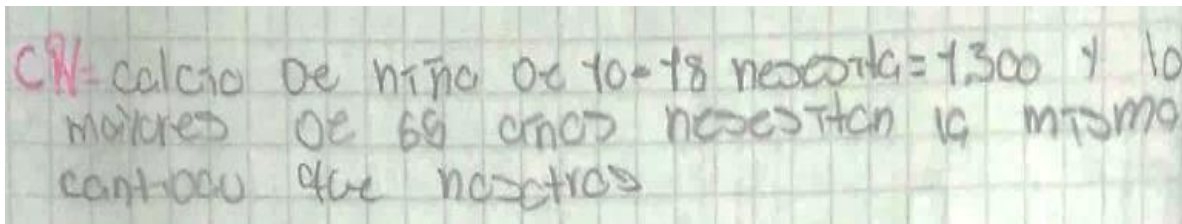 CN= calcio De niña De 10-18 nesesita=1.300 y lo
mallores De 65 años nesesitan la misma
cantidad que nosotros